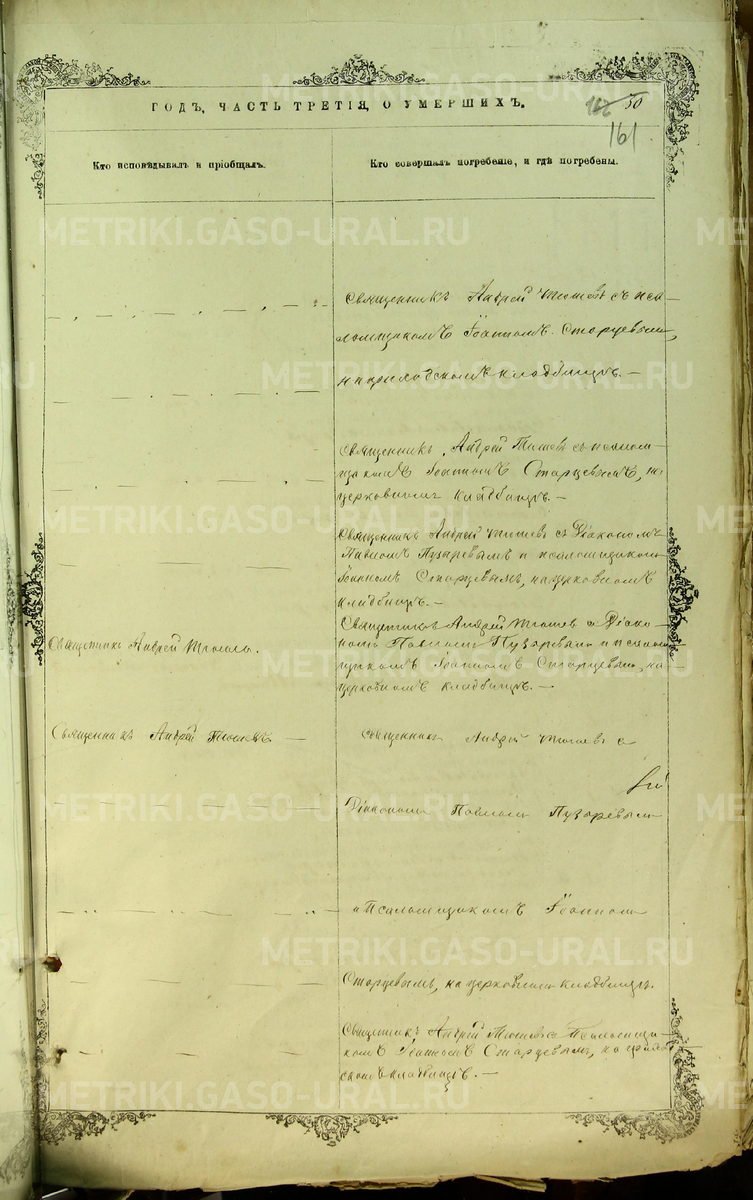 ГОДЪ, ЧАСТЬ ТРЕТІЯ, О УМЕРШИХЪ.
50
161
Кто исповѣдывалъ и пріобщалъ.
Кто совершалъ погребеніе, и гдѣ погребены.
Священникъ Андрей Тюшевъ съ пса-
ломщикомъ Іоанномъ Старцевымъ,
на приходскомъ кладбищѣ. —
Священникъ Андрей Тюшевъ съ псалом-
щикомъ Іоанномъ Старцевымъ, на
церковномъ кладбищѣ. —
Священникъ Андрей Тюшевъ съ Діакономъ
Павломъ Пузыревымъ и псаломщикомъ
Іоанномъ Старцевымъ, на церковномъ
кладбищѣ. —
Священникъ Андрей Тюшевъ.
Священникъ Андрей Тюшевъ съ Діако-
номъ Павломъ Пузыревымъ и псалом-
щикомъ Іоанномъ Старцевымъ, на
церковномъ кладбищѣ. —
Священникъ Андрей Тюшевъ. —
Священникъ Андрей Тюшевъ съ
Діакономъ Павломъ Пузыревымъ
и Псаломщикомъ Іоанномъ
Старцевымъ, на церковномъ кладбищѣ.
Священникъ Андрей Тюшевъ съ Псаломщи-
комъ Іоанномъ Старцевымъ, на приход-
скомъ кладбищѣ. —
METRIKI.GASO-URAL.RU